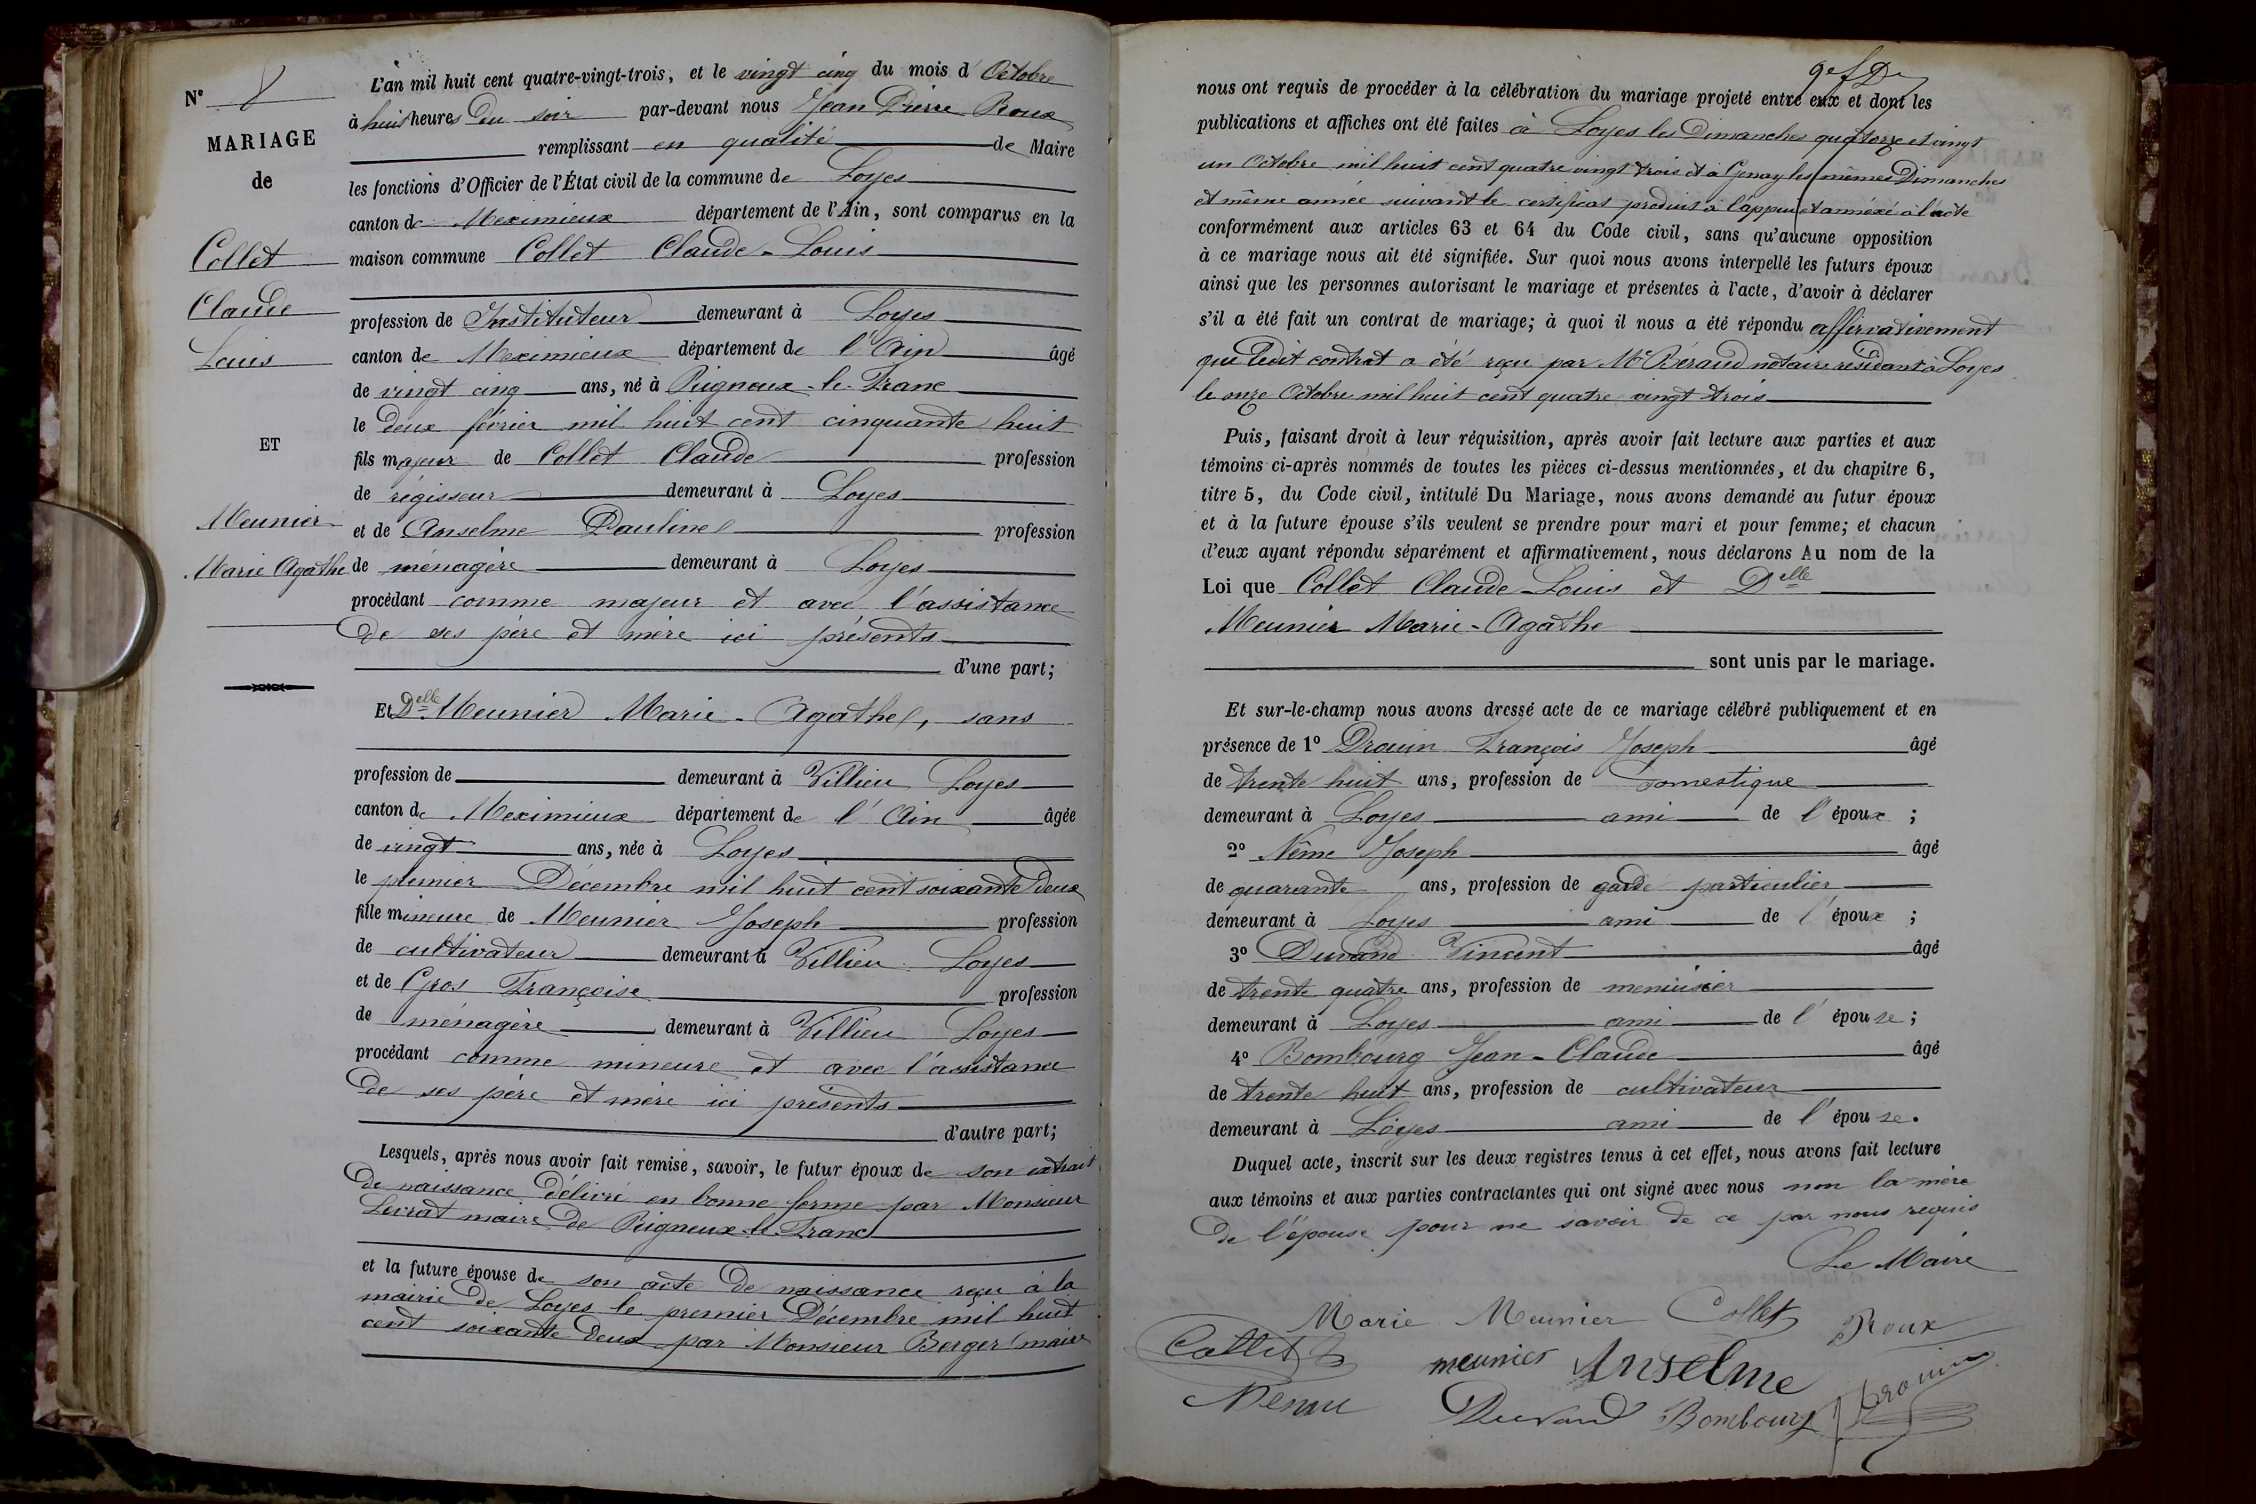 N° 8
MARIAGE
de
Collet
Claude
Louis
ET
Meunier
Marie Agathe
L'an mil huit cent quatre-vingt-trois, et le vingt cinq du mois d'Octobre
à huit heures du soir par-devant nous Jean Pierre Roux
remplissant en qualité de Maire
les fonctions d'Officier de l'État civil de la commune de Loyes
canton de Meximieux département de l'Ain, sont comparus en la
maison commune Collet Claude-Louis
profession de Instituteur demeurant à Loyes
canton de Meximieux département de l'Ain âgé
de vingt cinq ans, né à Rigneux-le-Franc
le deux février mil huit cent cinquante huit
fils majeur de Collet Claude profession
de régisseur demeurant à Loyes
et de Anselme Pauline profession
de ménagère demeurant à Loyes
procédant comme majeur et avec l'assistance
de ses père et mère ici présents
d'une part;
Et Delle Meunier Marie-Agathe, sans
profession de demeurant à Villieu Loyes
canton de Meximieux département de l'Ain âgée
de vingt ans, née à Loyes
le premier Décembre mil huit cent soixante deux
fille mineure de Meunier Joseph profession
de cultivateur demeurant à Villieu Loyes
et de Gros Françoise profession
de ménagère demeurant à Villieu Loyes
procédant comme mineure et avec l'assistance
de ses père et mère ici présents
d'autre part;
Lesquels, après nous avoir fait remise, savoir, le futur époux de son extrait
de naissance délivré en bonne forme par Monsieur
Levrat maire de Rigneux-le-Franc
et la future épouse de son acte de naissance reçu à la
mairie de Loyes le premier Décembre mil huit
cent soixante deux par Monsieur Berger maire
nous ont requis de procéder à la célébration du mariage projeté entre eux et dont les
publications et affiches ont été faites à Loyes les Dimanches quatorze et vingt
un Octobre mil huit cent quatre vingt trois et à Genay les mêmes Dimanches
et même année suivant le certificat produit à l'appui et annéxé à l'acte
conformément aux articles 63 et 64 du Code civil, sans qu'aucune opposition
à ce mariage nous ait été signifiée. Sur quoi nous avons interpellé les futurs époux
ainsi que les personnes autorisant le mariage et présentes à l'acte, d'avoir à déclarer
s'il a été fait un contrat de mariage; à quoi il nous a été répondu affirvativement
que ledit contrat a été reçu par Me Béraud notaire résidant à Loyes
le onze Octobre mil huit cent quatre vingt trois
Puis, faisant droit à leur réquisition, après avoir fait lecture aux parties et aux
témoins ci-après nommés de toutes les pièces ci-dessus mentionnées, et du chapitre 6,
titre 5, du Code civil, intitulé Du Mariage, nous avons demandé au futur époux
et à la future épouse s'ils veulent se prendre pour mari et pour femme; et chacun
d'eux ayant répondu séparément et affirmativement, nous déclarons Au nom de la
Loi que Collet Claude-Louis et Delle
Meunier Marie-Agathe
sont unis par le mariage.
Et sur-le-champ nous avons dressé acte de ce mariage célébré publiquement et en
présence de 1° Drouin François Joseph âgé
de trente huit ans, profession de domestique
demeurant à Loyes ami de l'époux ;
2° Nême Joseph âgé
de quarante ans, profession de garde particulier
demeurant à Loyes ami de l'époux ;
3° Durand Vincent âgé
de trente quatre ans, profession de menuisier
demeurant à Loyes ami de l'épouse ;
4° Bombourg Jean-Claude âgé
de trente huit ans, profession de cultivateur
demeurant à Loyes ami de l'épouse.
Duquel acte, inscrit sur les deux registres tenus à cet effet, nous avons fait lecture
aux témoins et aux parties contractantes qui ont signé avec nous non la mère
de l'épouse pour ne savoir de ce par nous requis
Le Maire
Marie Meunier Collet Roux
Collet meunier Anselme Drouin
Durand Bombourg